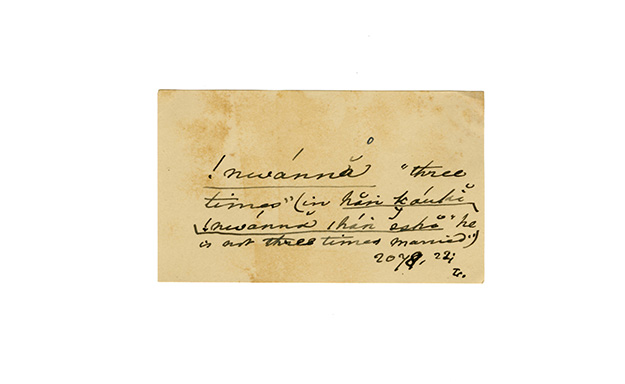 !nwánnă̊ "three
times" (in hăń ḱáukĭ
!nwánnă |háń ĕ̱shŏ "he
is not three times married")
2078, 22;
Tr.